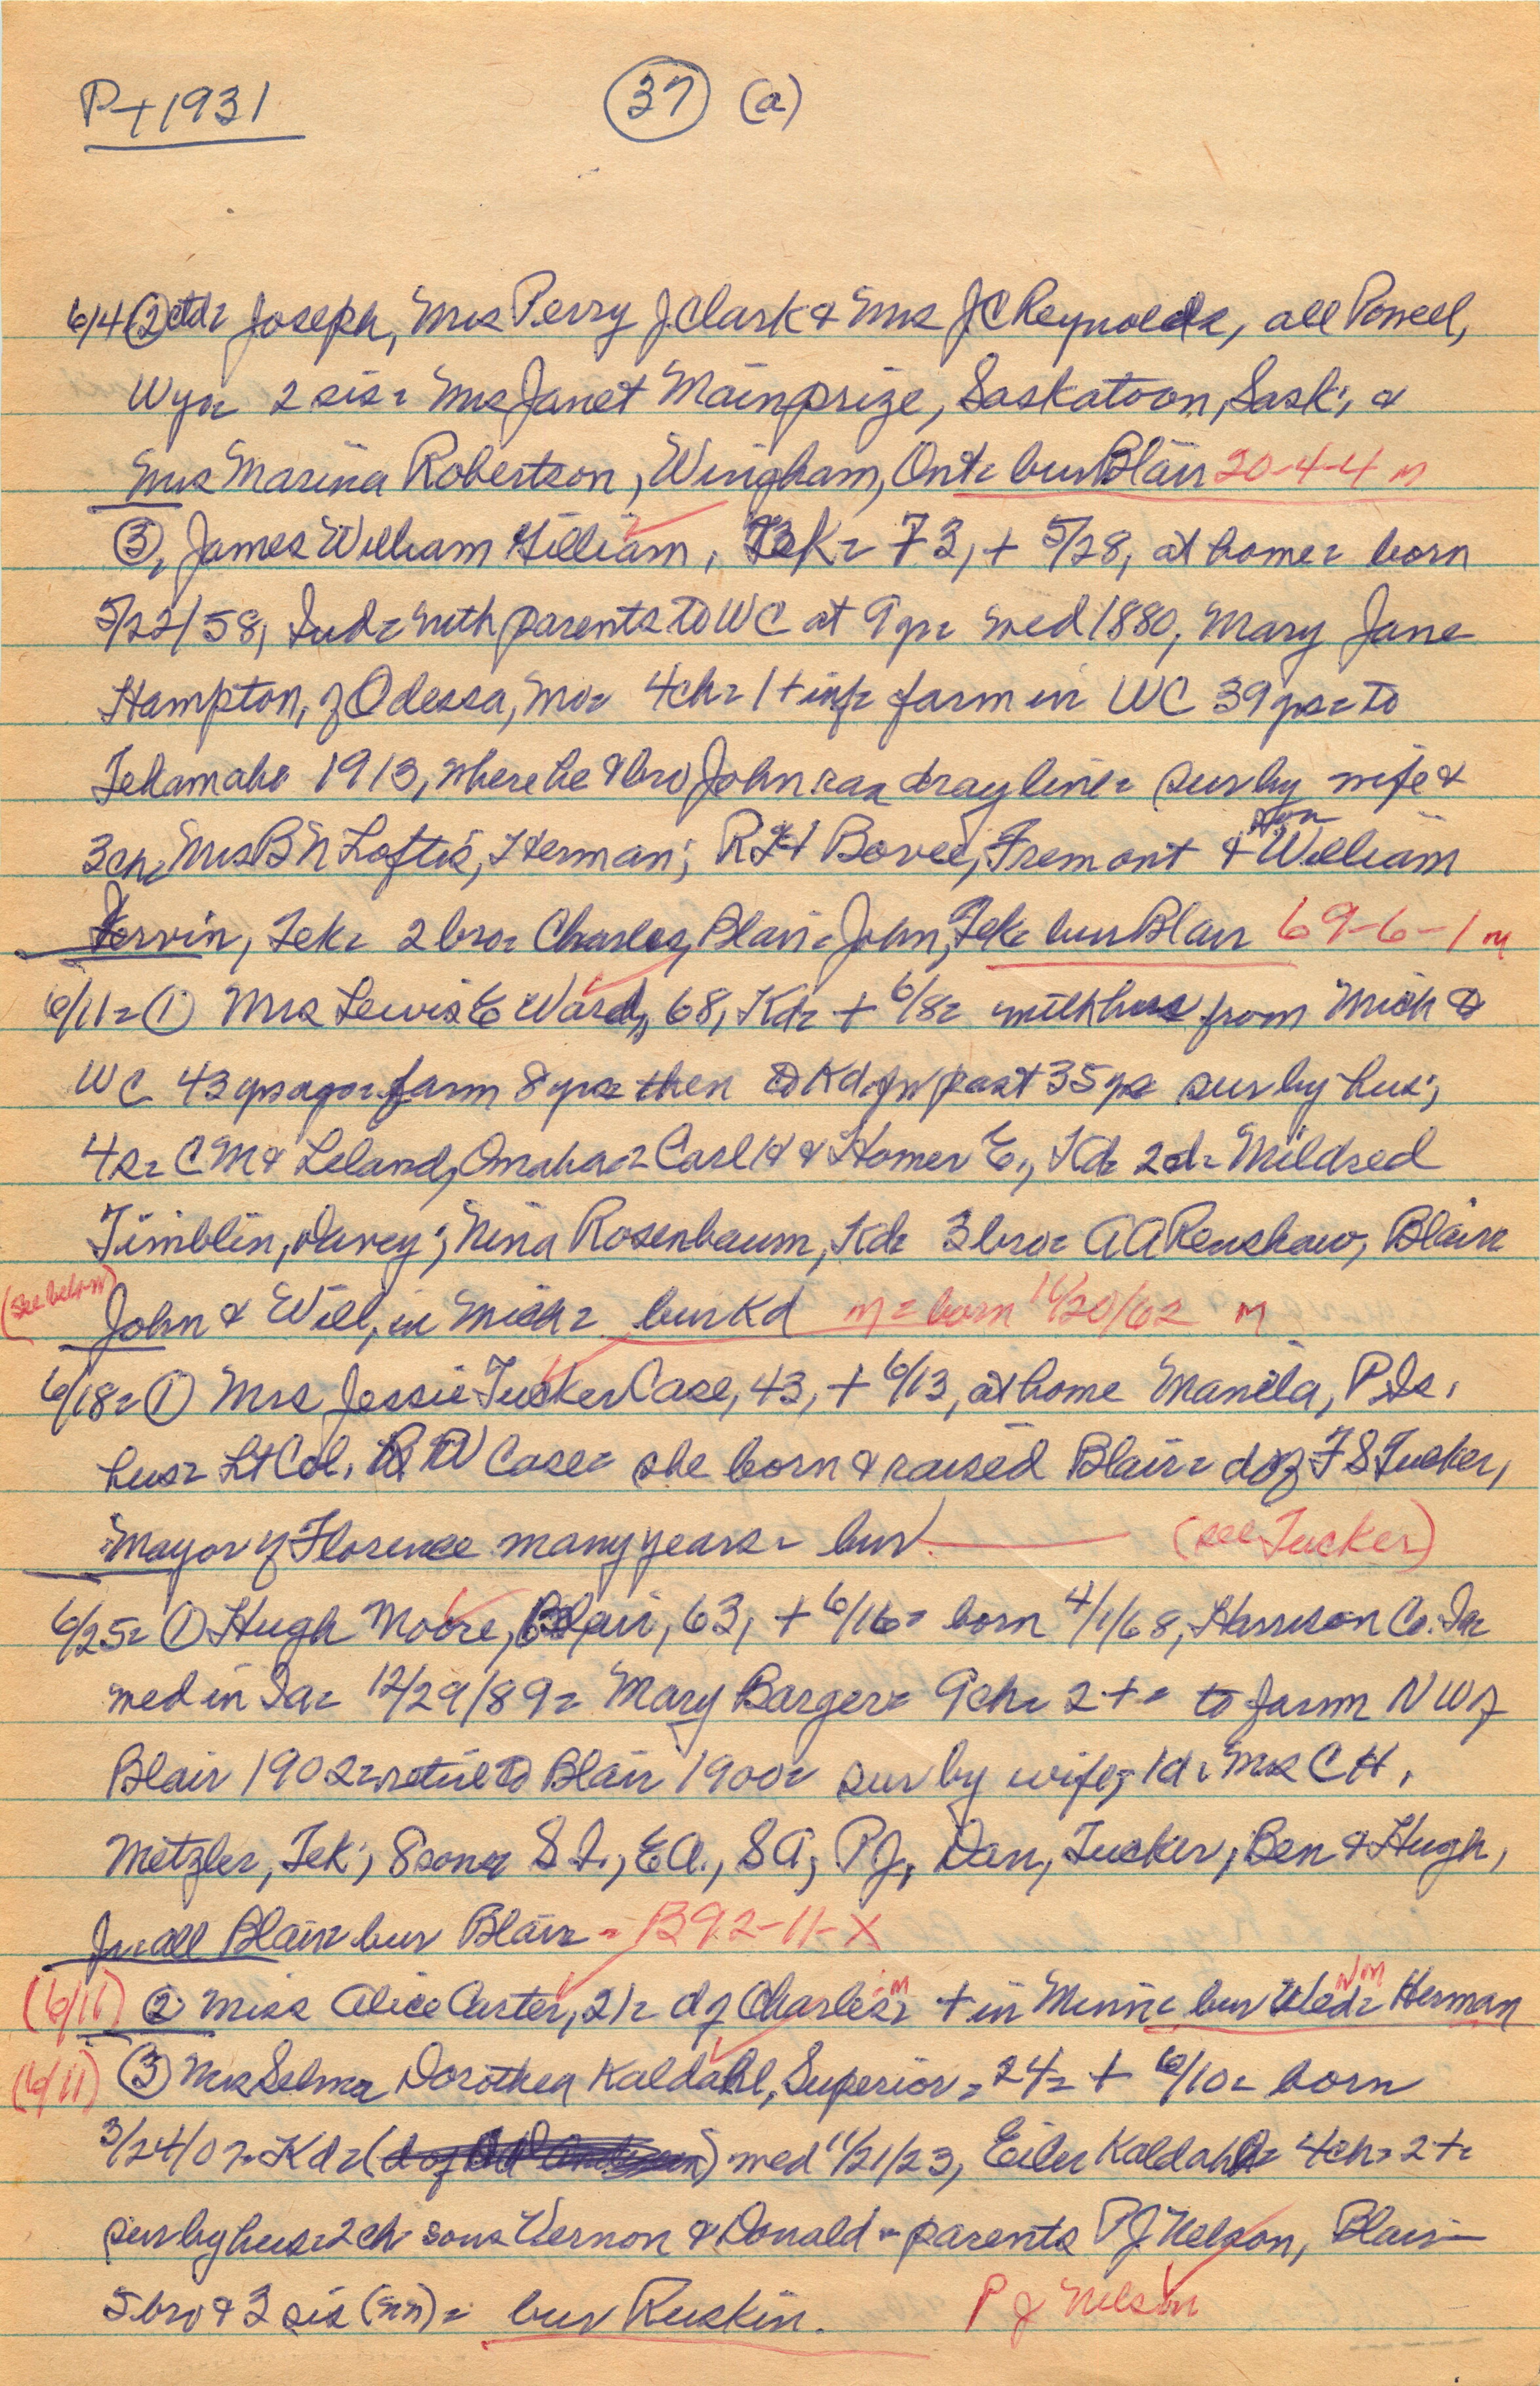 P+1931 37 (a)
6/4 (2) ctd = Joseph, Mrs Perry J. Clark & Mrs J C Reynolds, all Powell,
Wyo = 2 sis = Mrs Janet Mainprize, Saskatoon, Sask; &
Mrs Marina Robertson, Wingham, Ont = bur Blair 20-4-4 m
(3), James William Gilliam, Tek = 73, + 5/28, at home = born
5/22/58, Ind = with parents to WC at 9 yr = med 1880, Mary Jane
Hampton, of Odessa, Mo = 4 ch = 1 + inf = farm in WC 39 yrs = to
Tekamah 1913, where he & bro John ran dray line = sur by wife &
3 ch = Mrs B N Loftis, Herman; R H Bovee, Fremont & son William
Ervin, Tek = 2 bro = Charles, Blair = John, Tek = bur Blair 69-6-1 m
6/11 = (1) Mrs Lewis E Ward, 68, Kd = + 6/8 = with hus from Mich to
WC 43 yrs ago = farm 8 yrs = then to Kd for past 35 yrs sur by hus;
4 s = C M & Leland, Omaha = Carl H & Homer E., Kd = 2 d = Mildred
Timblin, Davey; Nina Rosenbaum, Kd = 3 bro = A A Renshaw, Blair =
(see below) John & Will, in Mich = bur Kd m = born 10/20/62 m
6/18 = (1) Mrs Jessie Tucker Case, 43, + 6/13, at home Manila, P. Is.
hus = Lt Col. R W Case = she born & raised Blair = d of F S Tucker,
Mayor of Florence many years = bur (see Tucker)
6/25 = (1) Hugh Moore, Blair, 63, + 6/16 = born 4/1/68, Harrison Co. Ia =
med in Ia = 12/29/89 = Mary Barger = 9 ch = 2 + = to farm NW of
Blair 1902 = retire to Blair 1900 = sur by wife; 1 d = Mrs C H.
Metzler, Tek; 8 sons = S I., E A., S A; P J, Dan, Tucker, Ben & Hugh,
Jr = all Blair = bur Blair = B92-11-X
(6/11) (2) Miss Alice Carter, 21 = d of Charles = m + in Minn = bur Wed = nm Herman
(6/11) (3) Mrs Selma Dorothea Kaldahl, Superior = 24 = + 6/10 = born
3/24/07 = Kd = med 11/21/23, Eiler Kaldahl = 4 ch = 2 + =
sur by hus = 2 ch sons Vernon & Donald = parents P J Nelson, Blair =
5 bro & 3 sis (nn) = bur Ruskin. P J Nelson